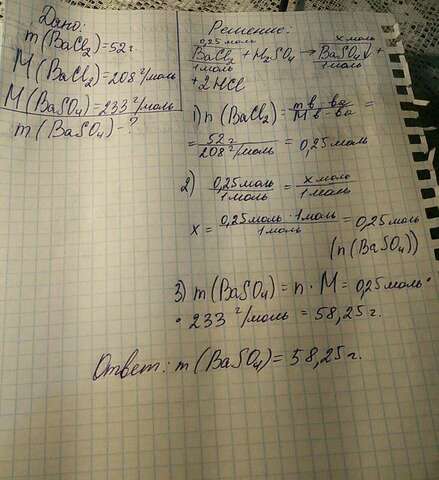 Дано:
m(BaCl₂)=52г.
M(BaCl₂)=208 г/моль
M(BaSO₄)=233 г/моль
m(BaSO₄)-?
Решение:
0,25моль x моль
BaCl₂ + H₂SO₄ → BaSO₄↓ +
1моль 1моль
+ 2HCl
1) n(BaCl₂) = m в-ва / M в-ва =
= 52 г / 208 г/моль = 0,25моль
2) 0,25моль / 1моль = x моль / 1моль
x = 0,25моль · 1моль / 1моль = 0,25моль
(n(BaSO₄))
3) m(BaSO₄) = n · M = 0,25моль ·
· 233 г/моль = 58,25 г.
Ответ: m(BaSO₄) = 58,25 г.